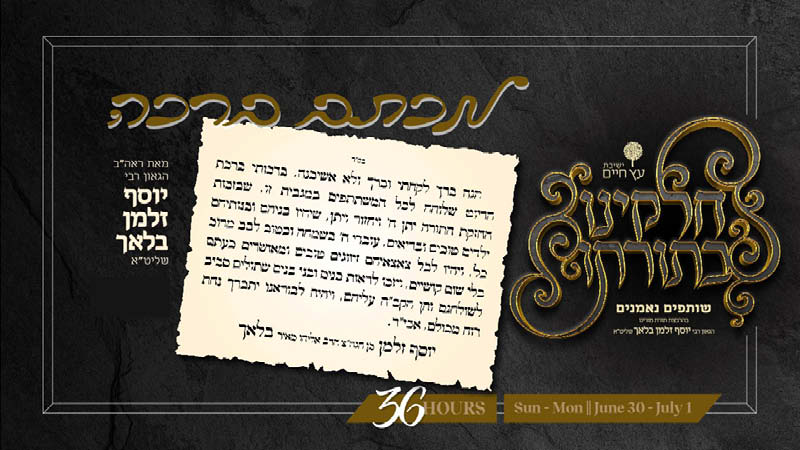 מכתב ברכה
מאת ראה"ב
הגאון רבי
יוסף
זלמן
בלאך
שליט"א
בס"ד
הנה ברך לקחתי וברך ולא אשיבנה, ברכותי ברכת
הדיוט שלוחה לכל המשתתפים במגבית זו, שבזכות
החזקת התורה יתן ה' ויחזור ויתן, שיהיו בניהם ובנותיהם
ילדים טובים ובריאים, עובדי ה' בשמחה ובטוב לבב מרוב
כל, ויהיו לכל צאצאיהם זיווגים טובים ומאושרים בעתם
בלי שום קושיים, ויזכו לראות בנים ובני בנים שתולים סביב
לשולחנם ותן הקב"ה עליהם, ויהיה לבוראנו יתברך נחת
רוח מכולם, אכי"ר.
יוסף זלמן בן הגה"צ הרב אליהו מאיר בלאך
ישיבת
עץ חיים
חלקינו
בתורתך
שותפים נאמנים
בהרבצת תורת מורינו
הגאון רבי יוסף זלמן בלאך שליט"א
36 HOURS
Sun - Mon || June 30 - July 1